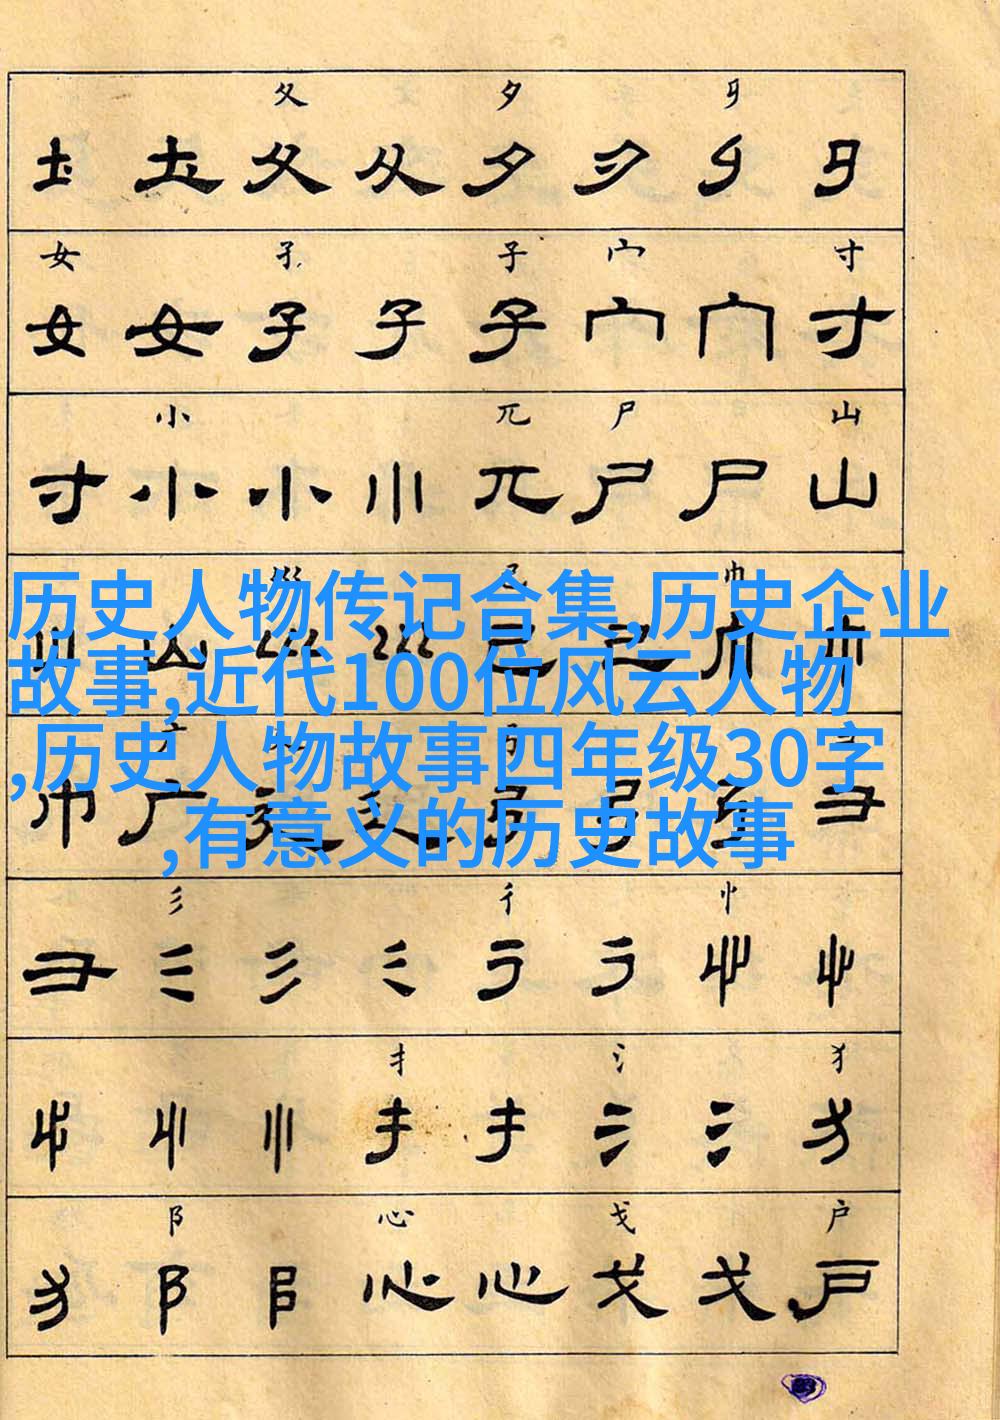 夂 夕 㐄
土 土 夂 夂 夕 夕
女 孑 子 宀 寸
女 女 子 子 子 宀 宀 寸
小 兀 尸 山
寸 小 小 小 兀 尸 尸 山
历史人物传记合集,历史企业
故事,近代100位风云人物
,历史人物故事四年级30字
,有意义的历史故事
山 山 巛 巛 己 己 巾 巾
巾 广 廴 廴 弓 弓 弓 彐
彡 彳 忄
彐 彡 彡 彡 彳 彳 忄 忄
扌 氵 犭
忄 忄 忄 扌 扌 氵 氵 犭
阝 心 戈 户
犭 阝 阝 心 心 戈 戈 户